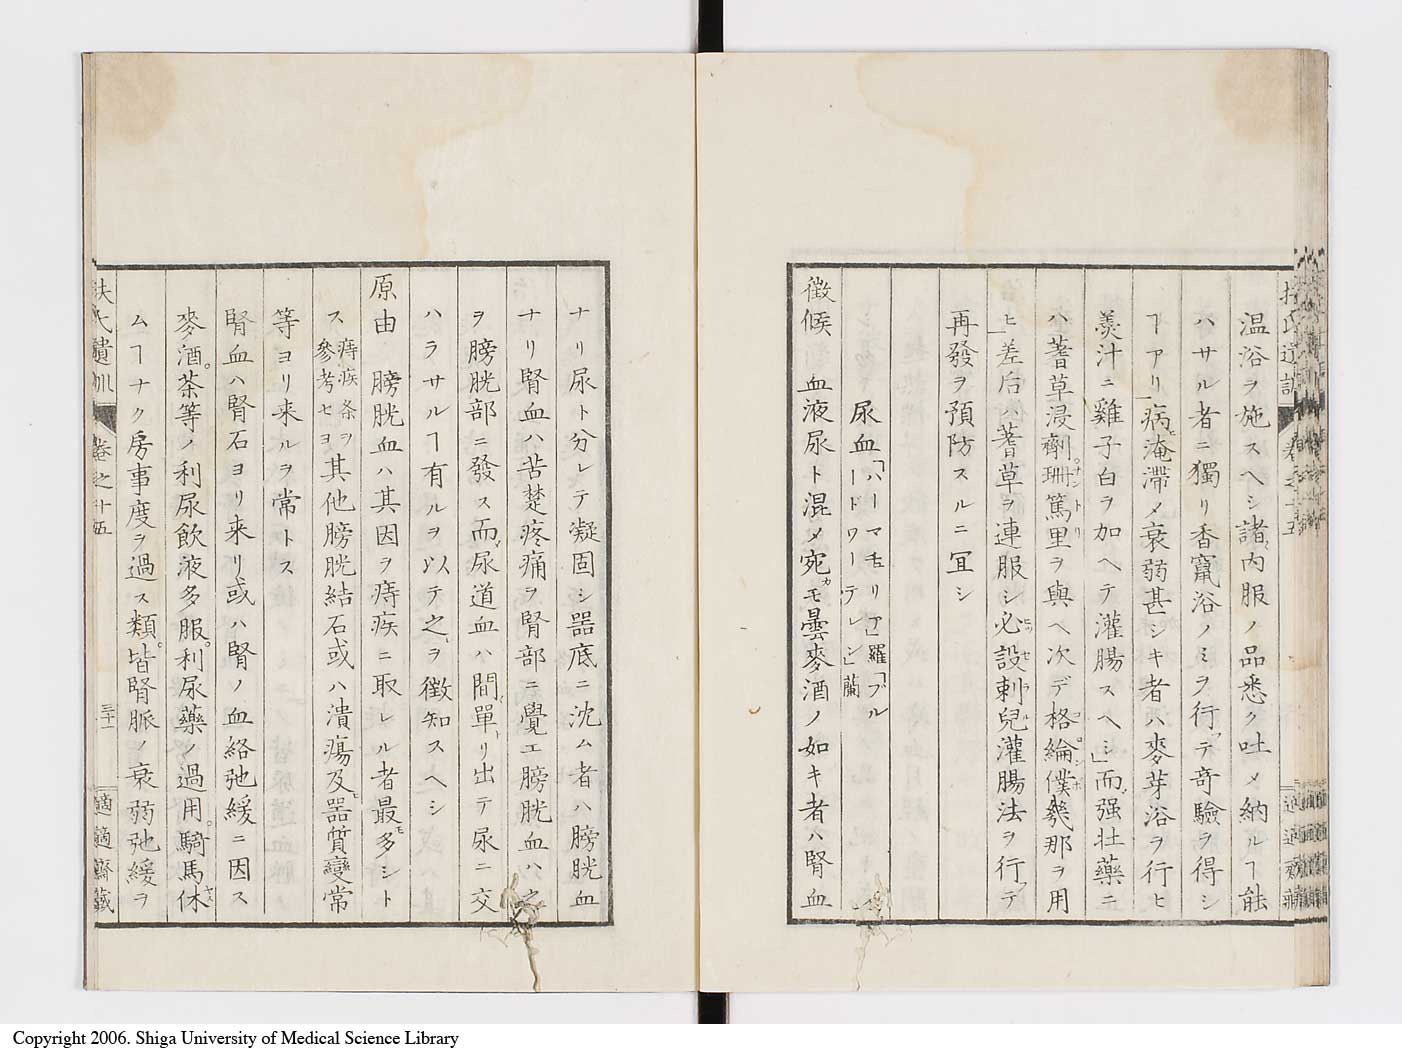 温浴ヲ施スヘシ諸内服ノ品悉ク吐メ納ルヿ能
ハサル者ニ獨リ香竄浴ノミヲ行テ奇驗ヲ得シ
ヿアリ」病淹滯メ衰弱甚シキ者ハ麥芽浴ヲ行ヒ
羹汁ニ雞子白ヲ加ヘテ灌腸スヘシ」而強壮藥ニ
ハ蓍草浸劑珊篤里ヲ與ヘ次デ格綸僕幾那ヲ用
ヒ」差后仍蓍草ヲ連服シ必設剌兒灌腸法ヲ行テ
再發ヲ預防スルニ冝シ
尿血「ハーマチュリア」羅「ブル
ードワーテレン」蘭
徴候 血液尿ト混メ宛モ曇麥酒ノ如キ者ハ腎血
ナリ尿ト分レテ凝固シ器底ニ沈ム者ハ膀胱血
ナリ腎血ハ苦楚疼痛ヲ腎部ニ覺エ膀胱血ハ之
ヲ膀胱部ニ發ス而尿道血ハ間單リ出テ尿ニ交
ハラサルヿ有ルヲ以テ之ヲ徴知スヘシ
原由 膀胱血ハ其因ヲ痔疾ニ取レル者最多シト
ス 痔疾条ヲ參考セヨ 其他膀胱結石或ハ潰瘍及器質變常
等ヨリ来ルヲ常トス
腎血ハ腎石ヨリ来リ或ハ腎ノ血絡弛緩ニ因ス
麥酒。茶等ノ利尿飲液多服。利尿藥ノ過用。騎馬休
ムヿナク房事度ヲ過ス類。皆腎脈ノ衰弱弛緩ヲ
扶氏遺訓 卷之十五 三十一 適適齋藏
Copyright 2006. Shiga University of Medical Science Library